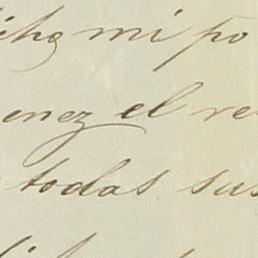 icha mi po
enez el re
todas sus